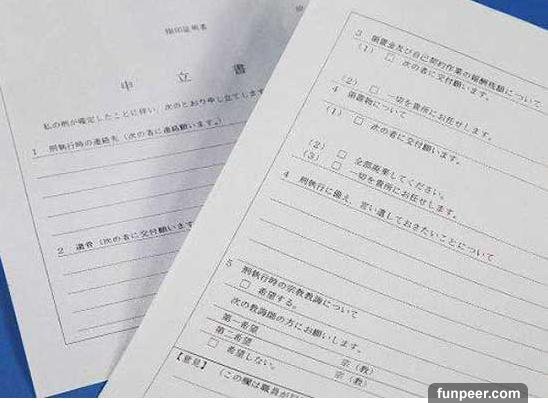 指印証明書
申立書
私の刑が確定したことに伴い、次のとおり申し立てします
1 刑執行時の連絡先（次の者に連絡願います。）
2 遺骨（次の者に交付願います
3 領置金及び自己契約作業の報酬残額について
（1）□ 次の者に交付願います。
（2）□ 一切を貴所にお任せします。
4 領置物について
（1）□ 次の者に交付願います。
（2）□ 全部廃棄してください。
（3）□ 一切を貴所にお任せします。
4 刑執行に備え、言い遺しておきたいことについて
5 刑執行時の宗教教誨について
□ 希望する。
次の教誨師の方にお願いします。
第一希望 宗（教）
第二希望 宗（教）
□ 希望しない。
【意見】（この欄は職員が
funpeer.com